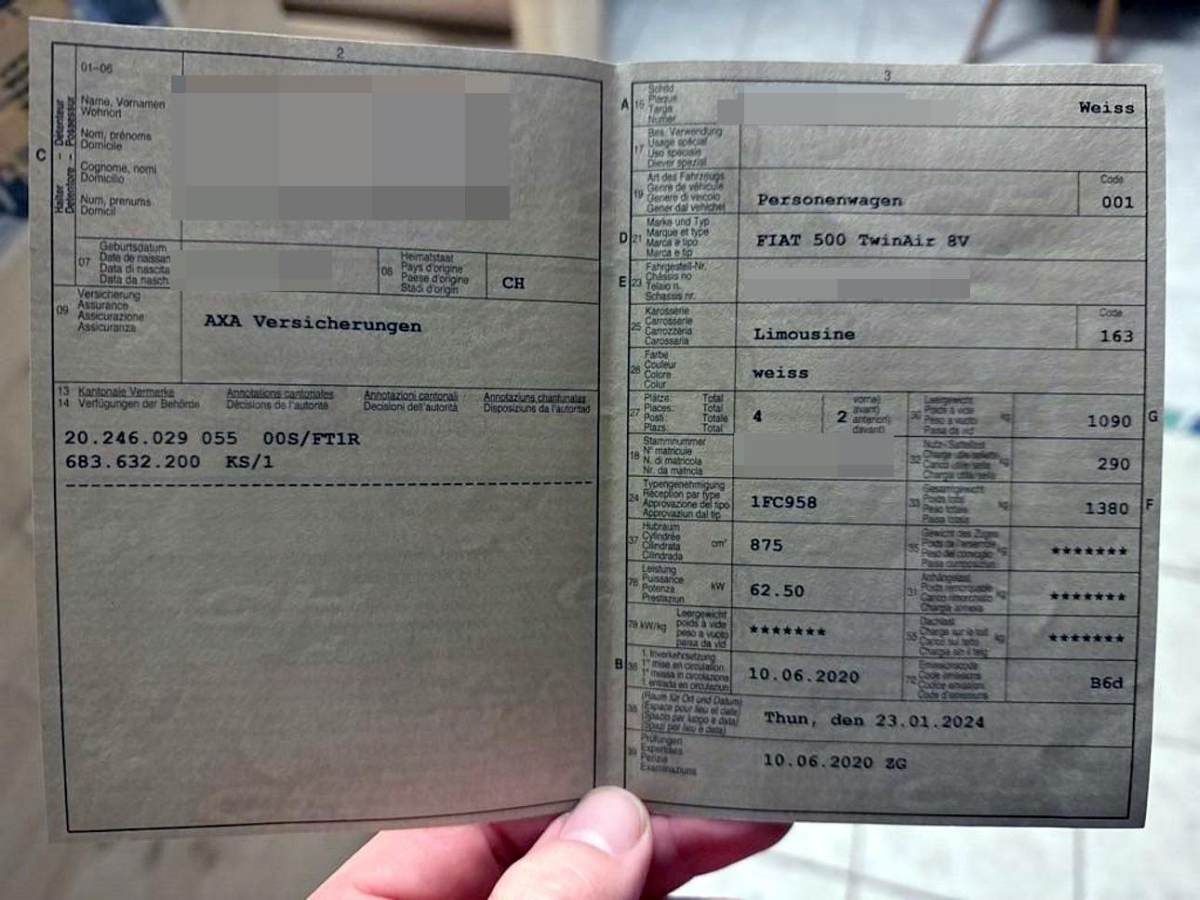 2
01-06
C
Halter – Détenteur
Detentore – Possessur
Name, Vornamen
Wohnort
Nom, prénoms
Domicile
Cognome, nomi
Domicilio
Num, prenums
Domicil
07
Geburtsdatum
Date de naissan
Data di nascita
Data da nasch.
06
Heimatstaat
Pays d'origine
Paese d'origine
Stadi d'origin
CH
09
Versicherung
Assurance
Assicurazione
Assicuranza
AXA Versicherungen
13 Kantonale Vermerke Annotations cantonales Annotazioni cantonali Annotaziuns chantunalas
14 Verfügungen der Behörde Décisions de l'autorité Decisioni dell'autorità Disposiziuns da l'autoritad
20.246.029 055 00S/FT1R
683.632.200 KS/1
3
A
15
Schild
Plaque
Targa
Numer
Weiss
17
Bes. Verwendung
Usage spécial
Uso speciale
Diever spezial
19
Art des Fahrzeugs
Genre de véhicule
Genere di veicolo
Gener dal vehichel
Personenwagen
Code
001
D
21
Marke und Typ
Marque et type
Marca e tipo
Marca e tip
FIAT 500 TwinAir 8V
E
23
Fahrgestell-Nr.
Châssis no
Telaio n.
Schassis nr.
25
Karosserie
Carrosserie
Carrozzeria
Carossaria
Limousine
Code
163
26
Farbe
Couleur
Colore
Colur
weiss
27
Plätze: Total
Places: Total
Posti: Totale
Plazs: Total
4
2
vorne)
avant)
anteriori)
davant)
30
Leergewicht
Poids à vide
Peso a vuoto
Paisa da vid
kg
1090
G
18
Stammnummer
N° matricule
N. di matricola
Nr. da matricla
32
kg
290
24
Typengenehmigung
Réception par type
Approvazione del tipo
Approvaziun dal tip
1FC958
33
Gesamtgewicht
Poids total
Peso totale
Paisa totala
kg
1380
F
37
Hubraum
Cylindrée
Cilindrata
Cilindrada
cm³
875
35
Gewicht des Zuges
kg
*******
76
Leistung
Puissance
Potenza
Prestaziun
kW
62.50
31
Anhängelast
kg
*******
78 kW/kg
Leergewicht
poids à vide
peso a vuoto
paisa da vid
*******
55
Dachlast
Charge sur le toit
kg
*******
B
36
1. Inverkehrsetzung
1re mise en circulation
1a messa in circolazione
1. entrada en circulaziun
10.06.2020
72
Emissionscode
Code émissions
Codice emissioni
Code d'emissiuns
B6d
38
(Raum für Ort und Datum)
(Espace pour lieu et date)
(Spazio per luogo e data)
(Spazi per lieu e data)
Thun, den 23.01.2024
39
Prüfungen
Expertises
Perizie
Examinaziuns
10.06.2020 ZG